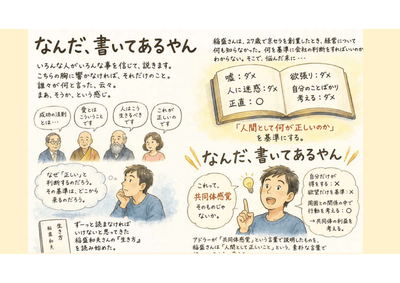 なんだ、書いてあるやん
いろんな人がいろんな事を信じて、説きます。
こちらの胸に響かなければ、それだけのこと。
誰々が何と言った、云々。
まあ、そうか、という感じ。
成功の法則
とは…
愛とは
こういうこと
です
人はこう
生きるべき
です
これが
正しいの
です
なぜ「正しい」と
判断するのだろう。
その基準は、どこから
来るのだろう。
生き方
稲盛和夫
ずーっと読まなければ
いけないと思ってきた
稲盛和夫さんの『生き方』
を読み始めた。
稲盛さんは、27歳で京セラを創業したとき、経営について
何も知らなかった。何を基準に会社の判断をすればいいのか
わからない。そこで、悩んだ末に…
嘘:ダメ
人に迷惑:ダメ
正直:○
欲張り:ダメ
自分のことばかり
考える:ダメ
「人間として何が正しいのか」
を基準にする。
なんだ、書いてあるやん
これって、
共同体感覚
そのものじゃ
ないか。
自分だけが
得をする:×
欲望だけを基準:×
周囲との関係の中で
行動を考える:○
→共同体の利益を
考える。
アドラーが「共同体感覚」という言葉で説明したものを、
稲盛さんは「人間として正しいこと」という、素朴な言葉で